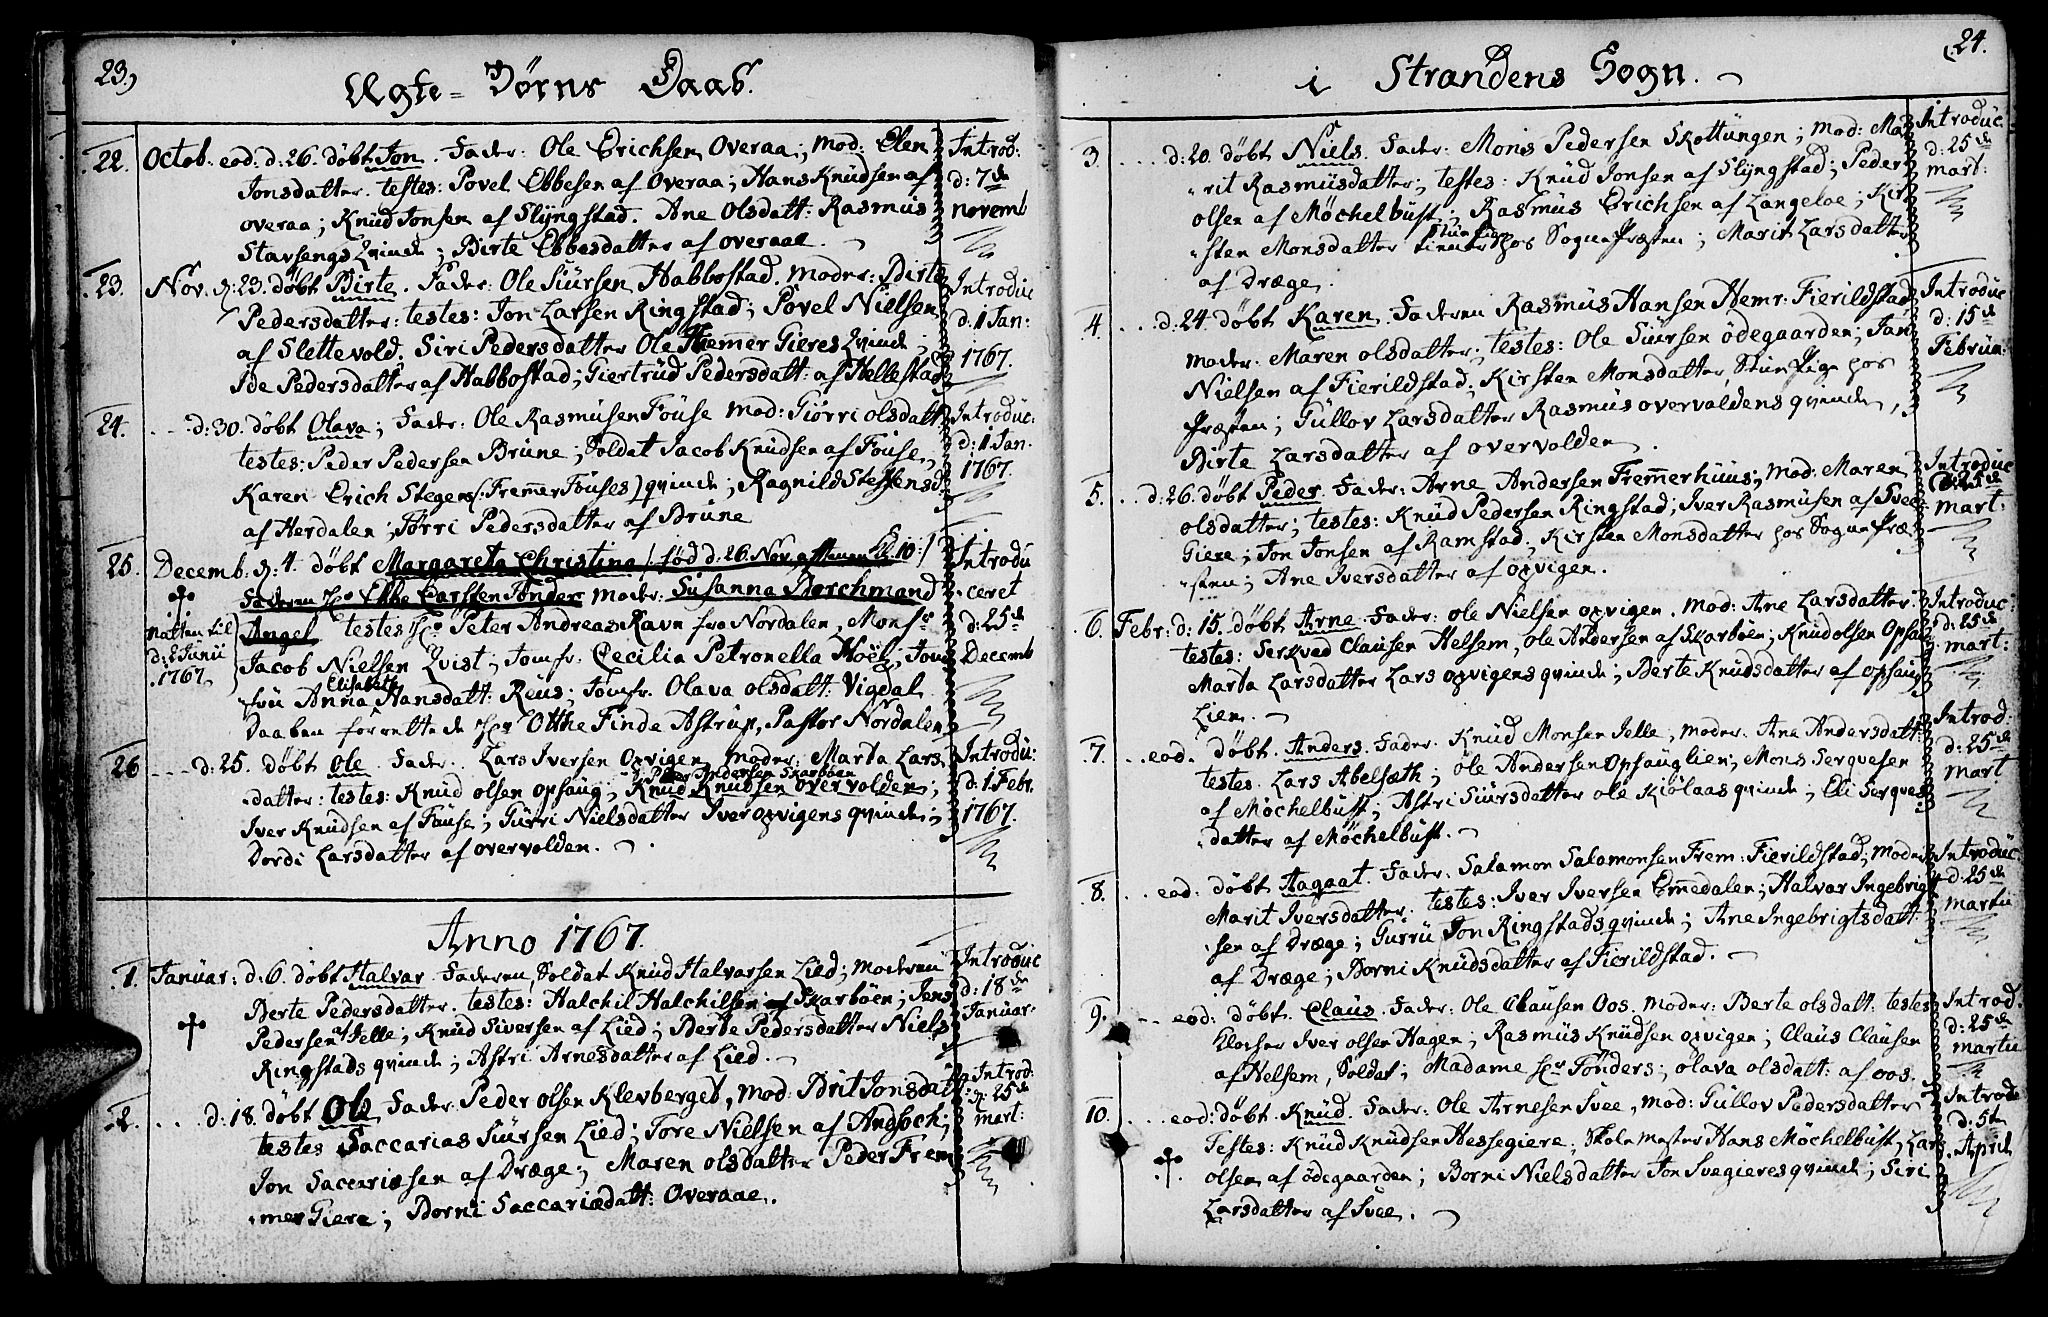 23.)
Ægte-Børns Daab.
22. Octob: eod: d: 26. døbt Jon. Fader: Ole Erichsen Overaa; Mod: Elen
Jonsdatter. testes: Povel Ebbesen af Overaa; Hans Knudsen af
overaa; Knud Jonsen af Slÿngstad. Ane Olsdatt: Rasmus
Stavsengs Qvinde; Birte Ebbesdatter af overaae.
Introd:
d: 7de
novemb
23. Nov. d: 23. døbt Birte. Fader: Ole Siursen Habbostad. Moder: Birte
Pedersdatter: testes: Jon Larsen Ringstad; Povel Nielsen
af Slettevold. Siri Pedersdatter Ole Fremmer Gieres Qvinde;
Ide Pedersdatter af Habbostad; Giertrud Pedersdatt: af Hellestad
Introduc
d: 1 Jan:
1767.
24. ... d: 30. døbt Olava; Fader: Ole Rasmusen Fouse Mod: Giørri olsdatt
testes: Peder Pedersen Brune; Soldat Jacob Knudsen af Fouse,
Karen Erich Stegens (: Fremmer Fouses) qvinde; Ragnild Steffensd
af Herdalen; Jørri Pedersdatter af Brune
Introduc:
d: 1 Jan.
1767.
25. Decemb: d: 4. døbt Margareta Christina /: fød d: 26. Nov. aftenen Kl: 10:/
Faderen Hr Ebbe Carsten Tønder Moder: Susanna Borchmand
Angel testes Hr Peter Andreas Ravn fra Nordalen, Monsr
Jacob Nielsen Qvist; Jomfr: Cecilia Petronella Høeg; Jom
fru Anna Elisabeth Hansdatt: Reus; Jomfr. Olava olsdatt: Vigdal
Daaben forrettede Hr Otthe Finde Astrup, Pastor Nordalen
natten til
d: 2 Janii
1767.
Introdu
ceret
d: 25de
Decemb
26 ... d: 25. døbt Ole. Fader. Lars Iversen Opvigen, Moder: Marta Lars
datter: testes: Knud olsen opsaug; Peder Andersen Skarbøen Knud Knudsen overvolden;
Iver Knudsen af Fause; Gurri Nielsdatter Iver opvigens qvinde;
Dordi Larsdatter af overvolden.
Introdu:
d: 1 Febr.
1767.
Anno 1767.
1. Januar: d: 6. døbt Halvar. Faderen, Soldat Knud Halvarsen Lied; Moderen
Berte Pedersdatter. testes: Halchil Halchilsen af Skarbøen; Jens
Pedersen af Jelle; Knud Siversen af Lied; Berte Pedersdatter Niels
Ringstads qvinde; Astri Arnesdatter af Lied.
Introduc
d: 18de
Januar
2. .... d: 18. døbt Ole. Fader Peder olsen Klevberget, Mod: Brit Jonsdat
testes Saccarias Siursen Lied; Tore Nielsen af Andsock;
Jon Saccariesen af Dræge; Maren olsdatter Peder Frem
mer Giere; Borni Saccariedatt: Overaae.
Introd:
d: 25de
mart:
24.
i Strandens Sogn.
3. .... d: 20. døbt Niels. Fader: Mons Pedersen Skottungen; Mod: Ma
rit Rasmusdatter; testes: Knud Jonsen af Slÿngstad; Peder
olsen af Møchelbust; Rasmus Erichsen af Langeloe; Kir
sten Monsdatter hos Sogne Præsten; Marit Larsdatter
af Dræge.
Introduc
d: 25de
mart:
4. ... d: 24. døbt Karen. Faderen Rasmus Hansen Hemr: Fierildstad
Moder: Maren olsdatter; testes: Ole Siursen ødegaarden; Jan
Nielsen af Fierildstad, Kirsten Monsdatter, Stue Pige hos
Præsten; Gullov Larsdatter Rasmus overvoldens qvinde,
Birte Larsdatter af overvolden.
Introduc
d: 15de
Februar:
5. .. d: 26. døbt Peder. Fader: Arne Andersen Fremmerhuus; Mod: Maren
olsdatter; testes: Knud Pedersen Ringstad; Iver Rasmusen af Svee-
Giere; Jon Jonsen af Ramstad, Kirsten Monsdatter hos Sogne Præ
sten; Ane Iversdatter af opvigen.
Introduc
d: 25de
mart:
6. Febr: d: 15. døbt Arne. Fader: ole Nielsen opvigen. Mod: Ane Larsdatter
testes: Serqved Clausen Helsem, ole Andersen af Skarbøen; Knud olsen Opsau
Marta Larsdatter Lars opvigens qvinde; Berte Knudsdatter af opsaug
Lien.
Introduc:
d: 25de
mart:
7. ... eod. døbt. Anders. Fader. Knud Monsen Jelle, Moder. Ane Andersdatt:
testes. Lars Abelsæth; Ole Andersen Opsauglien; Mons Serqvesen
af Møchelbust; Astri Siursdatter ole Kiølaas qvinde; Eli Serqves
datter af Møchelbust.
Introd:
d: 25de
mart
8. ... eod: døbt Aagaat. Fader: Salamon Salamonsen Frem: Fierildstad; Moder
Marit Iversdatter: testes: Iver Iversen Emedalen; Halvar Ingebrigt
sen af Dræge; Gurru Jon Ringstads qvinde; Ane Ingebrigtsdatt
af Dræge; Borni Knudsdatter af Fierildstad.
Introduc
d: 25de
martii
9. -- eod: døbt. Claus. Fader: Ole Clausen Oos. Moder: Berte olsdatt: testes
Klocker Iver olsen Hagen; Rasmus Knudsen opvigen; Claus Clausen
af Helsem, Soldat; Madame Hr Tønders; olava olsdatt: af oos.
Introd.
d: 25de
martii
10. .... eod: døbt. Knud. Fader: Ole Arnesen Svee, Mod: Gullov Pedersdatter
Testes: Knud Knudsen Hessegiere, Skole mester Hans Møchelbust, Lars
olsen af ødegaarden; Borni Nielsdatter Jon Svegieres qvinde; Siri
Larsdatter af Svee.
Introde
d: 5te
April